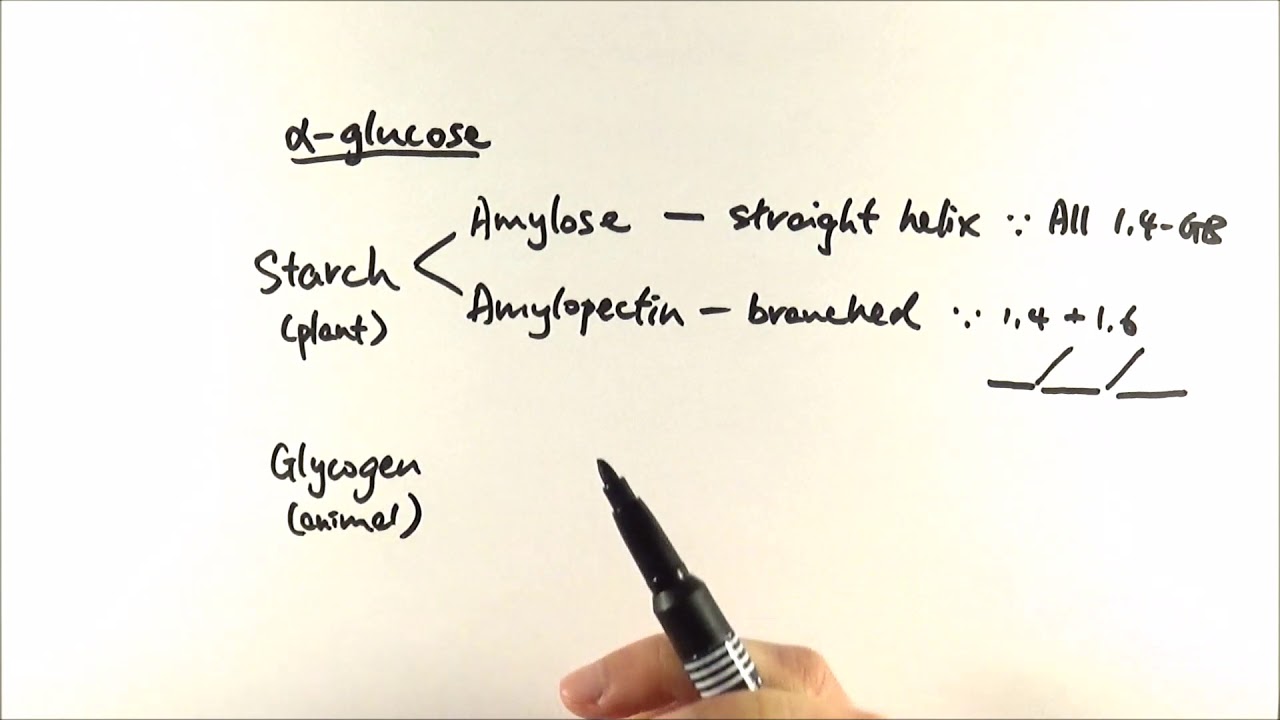 α-glucose
Amylose — straight helix ∵ All 1.4-GB
Starch
(plant)
Amylopectin — branched ∵ 1.4 + 1.6
Glycogen
(animal)